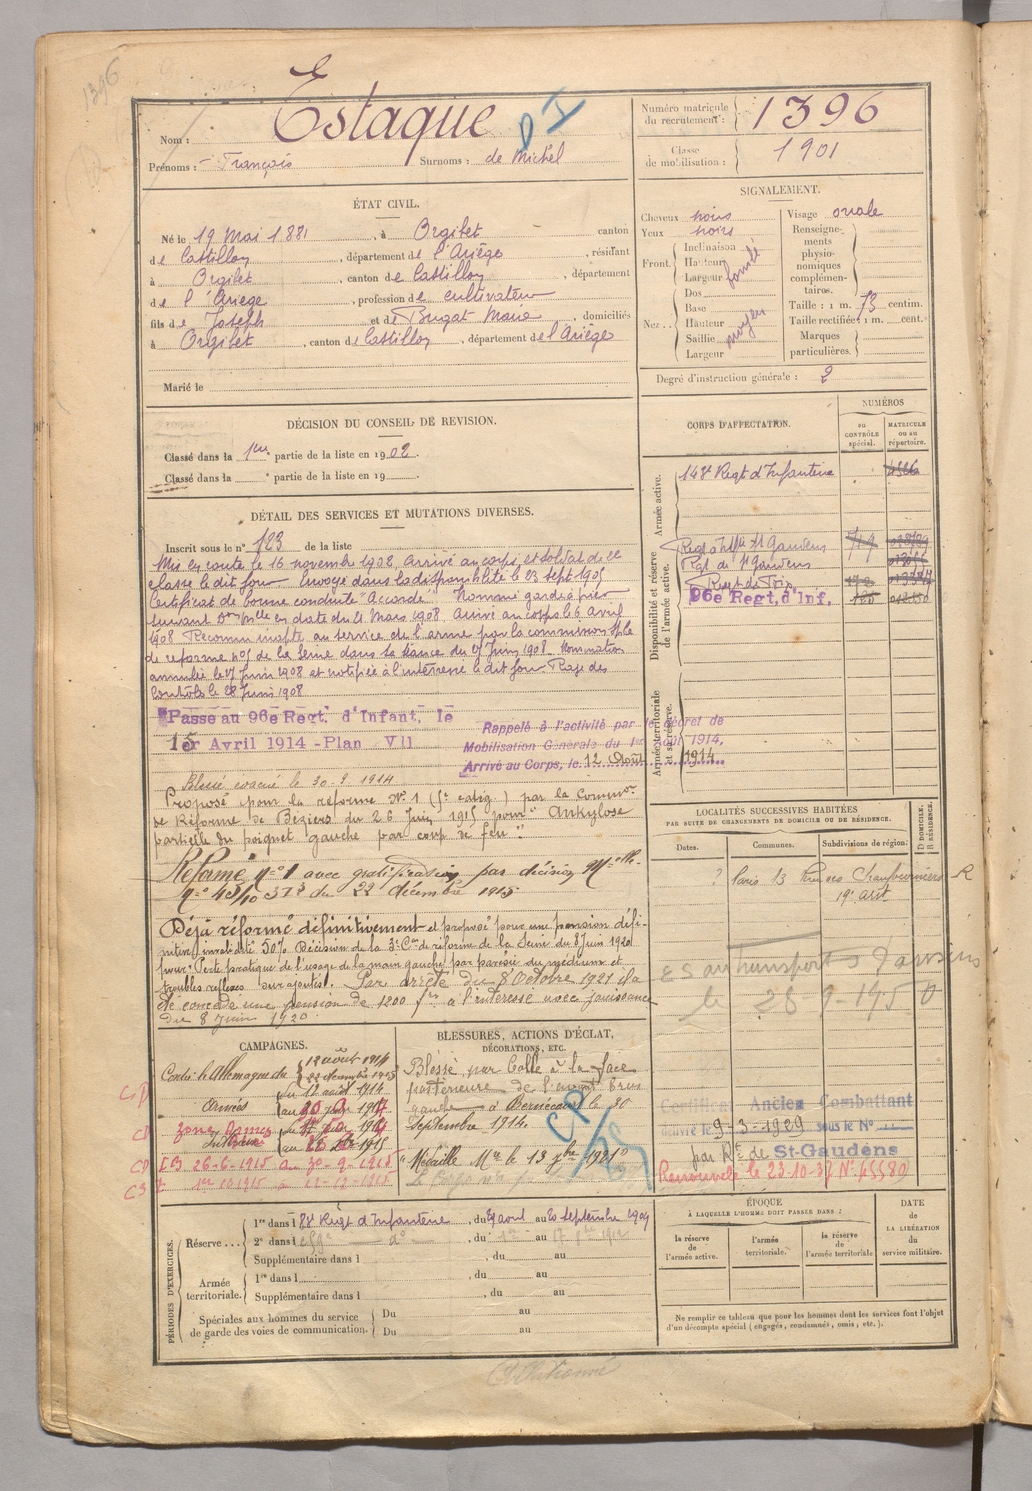 1396
Estaque
Nom :
Prénoms : François Surnoms : de Michel
Numéro matricule du recrutement : 1396
Classe de mobilisation : 1901
ÉTAT CIVIL.
Né le 19 Mai 1881, à Orgibet canton
de Castillon, département de l'Ariège, résidant
à Orgibet, canton de Castillon, département
de l'Ariège, profession de cultivateur
fils de Joseph et de Brugat Marie, domiciliés
à Orgibet, canton de Castillon, département de l'Ariège
Marié le
SIGNALEMENT.
Cheveux noirs
Yeux noirs
Front. Inclinaison
Hauteur
Largeur
Nez.. Dos
Base
Hauteur
Saillie moyen
Largeur
Visage ovale
Renseignements physionomiques complémentaires.
Taille : 1 m. 73 centim.
Taille rectifiée : 1 m. cent.
Marques particulières.
Degré d'instruction générale : 2
DÉCISION DU CONSEIL DE REVISION.
Classé dans la 1ère partie de la liste en 1902.
Classé dans la partie de la liste en 19
CORPS D'AFFECTATION.
NUMÉROS
au CONTRÔLE spécial.
MATRICULE ou au répertoire.
Armée active.
143e Regt d'Infanterie
Disponibilité et réserve de l'armée active.
Regt d'Inf. St Gaudens
Rgt de St Gaudens
96e Regt. d'Inf.
Armée territoriale et sa réserve.
DÉTAIL DES SERVICES ET MUTATIONS DIVERSES.
Inscrit sous le n° 123 de la liste
Mis en route le 16 novembre 1902, Arrivé au corps, et soldat de 2e
classe le dit jour. Envoyé dans la disponibilité le 23 Sept 1905
Certificat de bonne conduite "Accordé". Nommé garde à pied
suivant Don Mlle en date du 21 Mars 1908. Arrivé au corps le 6 avril
1908 Reconnu inapte au service de l'arme par la commission Sple
de reforme n° 1 de la Seine dans sa séance du Juin 1908. Nomination
annulée le Juin 1908 et notifiée à l'intéressé le dit jour. Rayé des
Contrôles le 28 Juin 1908
Passé au 96e Regt. d'Infant. le
1er Avril 1914 - Plan VII
Rappelé à l'activité par le Décret de
Mobilisation Générale du 1er Août 1914,
Arrivé au Corps, le 12 Août 1914
Blessé évacué le 30-9-1914
Proposé pour la réforme N° 1 par la Common
de Réforme de Béziers du 26 Juin 1915 pour "Ankylose
partielle du poignet gauche par coup de feu".
Réformé n° 1 avec gratification par décision Mlle
du 22 décembre 1915
Déjà réformé définitivement et proposé pour une pension défi-
nitive, invalidité 50% Décision de la 3e Con de réforme de la Seine du 8 Juin 1920
pour "Perte pratique de l'usage de la main gauche par parésie du médian et
troubles réflexes surajoutés". Par arrêté du 8 Octobre 1921 il a
été concédé une pension de 1200 frs à l'intéressé avec jouissance
du 8 Juin 1920
LOCALITÉS SUCCESSIVES HABITÉES
PAR SUITE DE CHANGEMENTS DE DOMICILE OU DE RÉSIDENCE.
Dates.
Communes.
Subdivisions de région.
D DOMICILE. R RÉSIDENCE.
? Paris 13 Rue des Chaufourniers R
19e arrt
le 28-9-1950
CAMPAGNES.
Contre l'Allemagne du 12 août 1914
22 décembre 1915
Armées du 12 août 1914
zone Armées
Intérieur
26-6-1915 au 30-9-1915
BLESSURES, ACTIONS D'ÉCLAT,
DÉCORATIONS, ETC.
Blessé par balle à la face
postérieure de l'avant bras
gauche à Bernécourt le 30
Septembre 1914.
Médaille Mre le 13 1921
Certificat Ancien Combattant
délivré le 9-3-1929 sous le N°
par Rt de St-Gaudens
Renouvelé le 23-10-37 N° 45580
PÉRIODES D'EXERCICES.
Réserve...
1re dans l 88e Régt d'Infanterie, du 29 août au 20 septembre 1909
2e dans l d°, du au 1912
Supplémentaire dans l, du au
Armée territoriale.
1re dans l, du au
Supplémentaire dans l, du au
Spéciales aux hommes du service de garde des voies de communication.
Du au
Du au
ÉPOQUE
À LAQUELLE L'HOMME DOIT PASSER DANS :
la réserve de l'armée active.
l'armée territoriale.
la réserve de l'armée territoriale
DATE de LA LIBÉRATION du service militaire.
Ne remplir ce tableau que pour les hommes dont les services font l'objet
d'un décompte spécial (engagés, condamnés, omis, etc.).